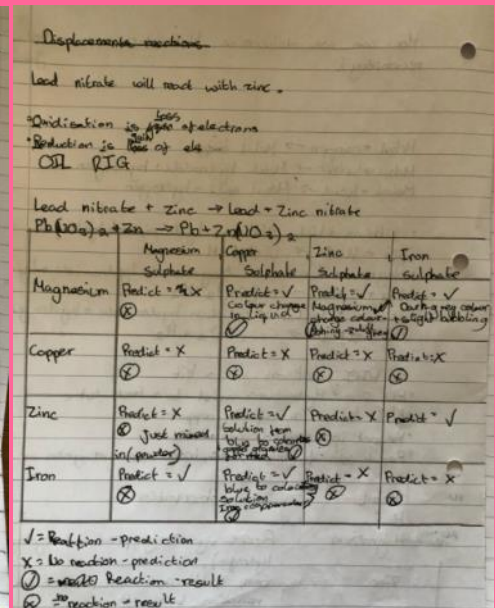 Displacements reactions
Lead nitrate will react with zinc.
•Oxidisation is loss of electrons
•Reduction is gain of els
OIL RIG
Lead nitrate + zinc → Lead + Zinc nitrate
Pb(NO₃)₂ + Zn → Pb + Zn(NO₃)₂
Magnesium Sulphate
Copper Sulphate
Zinc Sulphate
Iron Sulphate
Magnesium
Predict = X
ⓧ
Predict = ✓
Colour change in liquid
✓
Predict = ✓
Magnesium
change colour
Predict = ✓
Dark grey colour
bubbling
✓
Copper
Predict = X
ⓧ
Predict = X
ⓧ
Predict = X
ⓧ
Predict = X
ⓧ
Zinc
Predict = X
ⓧ Just mixed
in (powder)
Predict = ✓
Solution from
blue to
Predict = X
ⓧ
Predict = ✓
Iron
Predict = ✓
ⓧ
Predict = ✓
blue to
solution
Predict = X
ⓧ
Predict = X
ⓧ
✓ = Reaction - prediction
X = No reaction - prediction
✓ = Reaction - result
ⓧ = no reaction - result